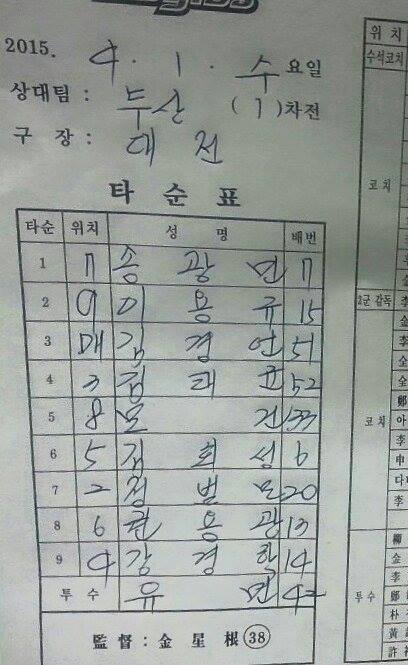 2015. 4. 1. 수요일
상대팀 : 두산 (1)차전
구장 : 대전
타순표
타순 위치 성명 배번
1 7 송광민 7
2 9 이용규 15
3 김경언 51
4 3 김태균 52
5 8 모건 33
6 5 김회성 6
7 2 정범모 20
8 6 권용관 13
9 4 강경학 14
투수 유먼 42
監督 : 金星根 38
위치
수석코치
코치
2군 감독
코치
투수